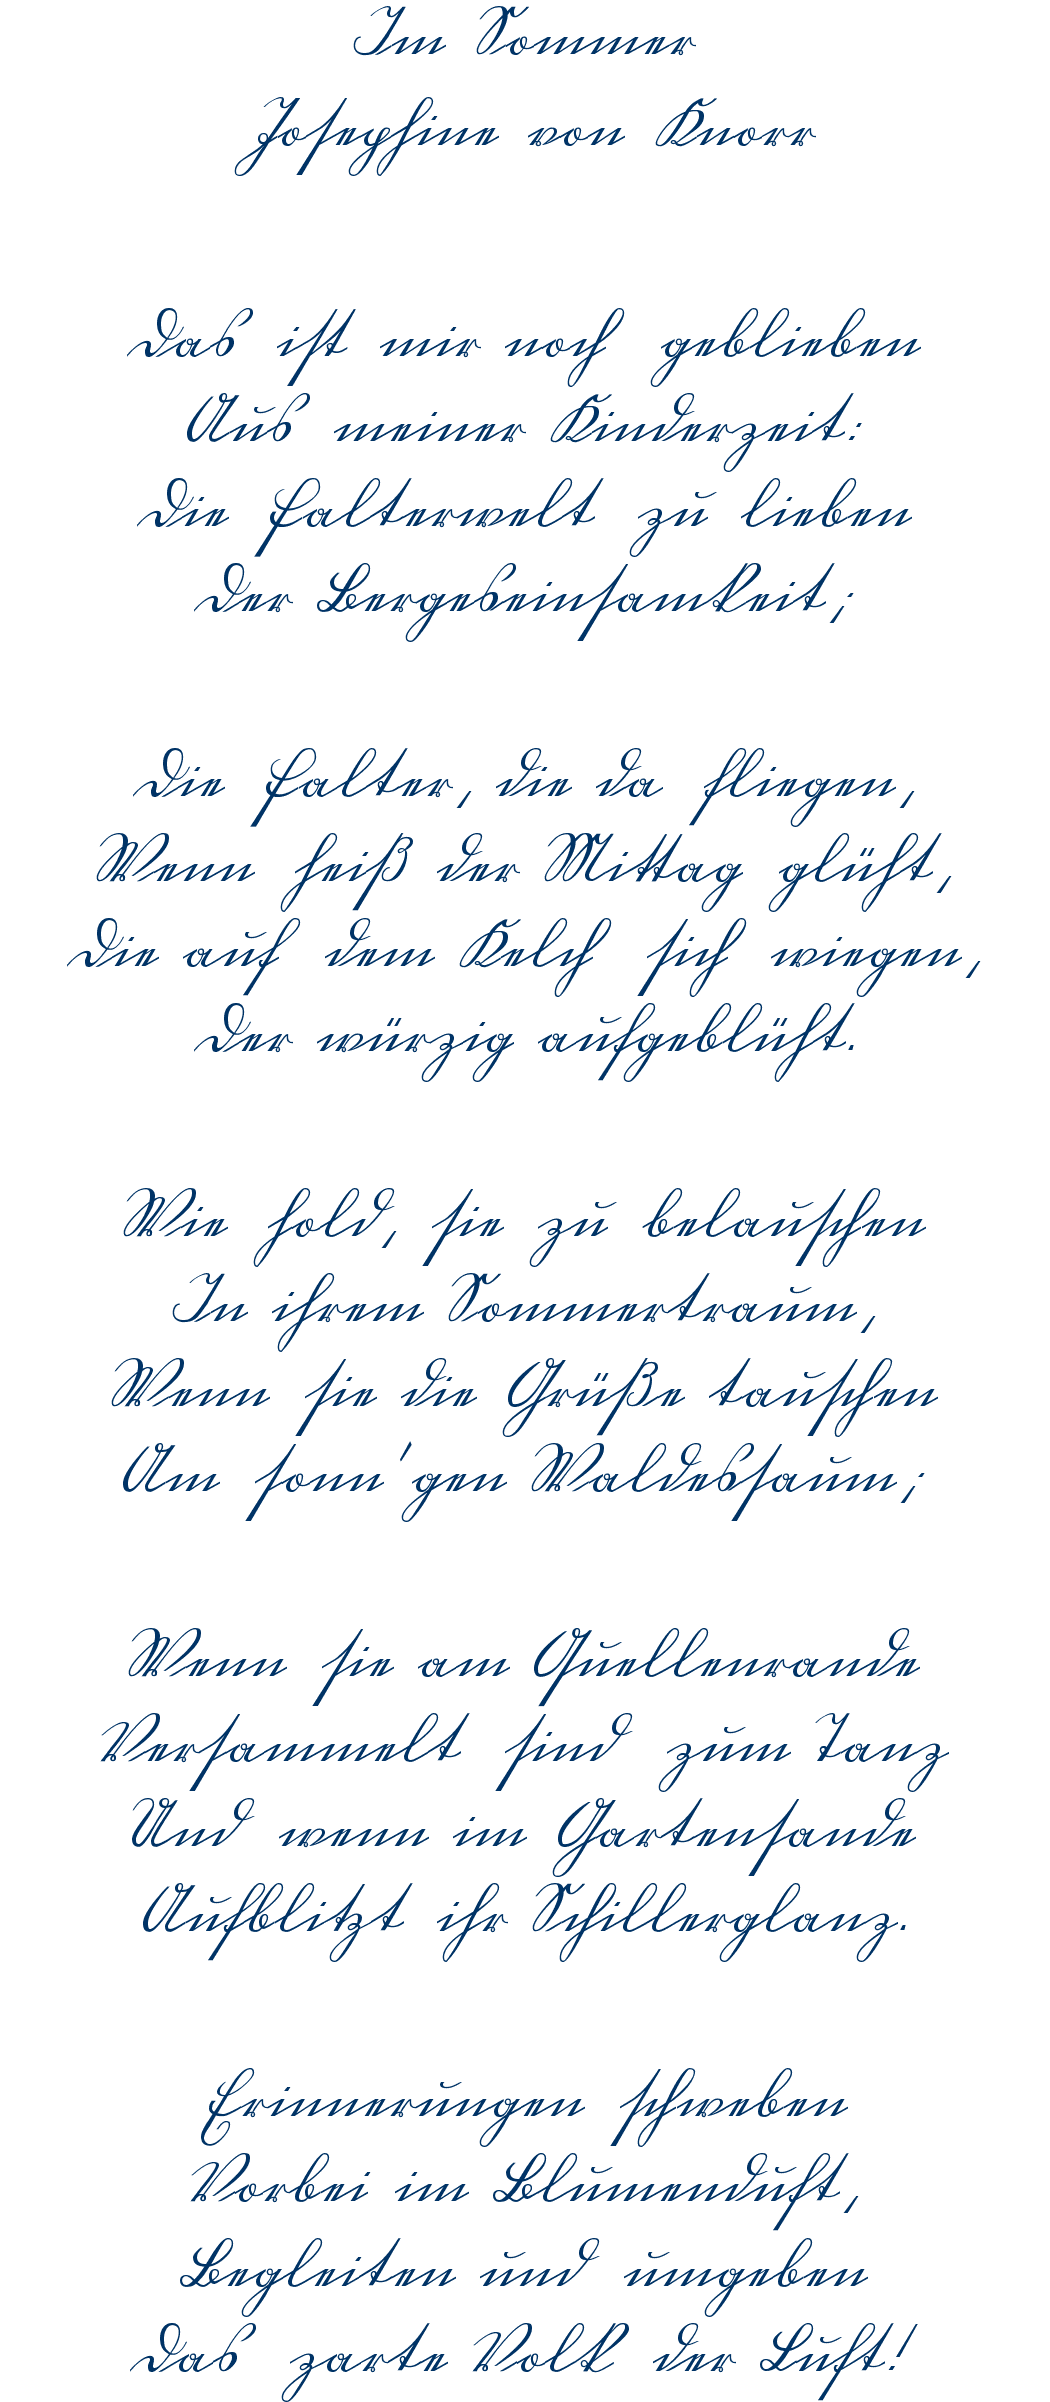 Im Sommer
Josephine von Knorr
Das ist mir noch geblieben
Aus meiner Kinderzeit:
Die Falterwelt zu lieben
Der Bergeseinsamkeit;
Die Falter, die da fliegen,
Wenn heiß der Mittag glüht,
Die auf dem Kelch sich wiegen,
Der würzig aufgeblüht.
Wie hold, sie zu belauschen
In ihrem Sommertraum,
Wenn sie die Grüße tauschen
Am sonn'gen Waldessaum;
Wenn sie am Quellenrande
Versammelt sind zum Tanz
Und wenn im Gartensande
Aufblitzt ihr Schillerglanz.
Erinnerungen schweben
Vorbei im Blumenduft,
Begleiten und umgeben
Das zarte Volk der Luft!